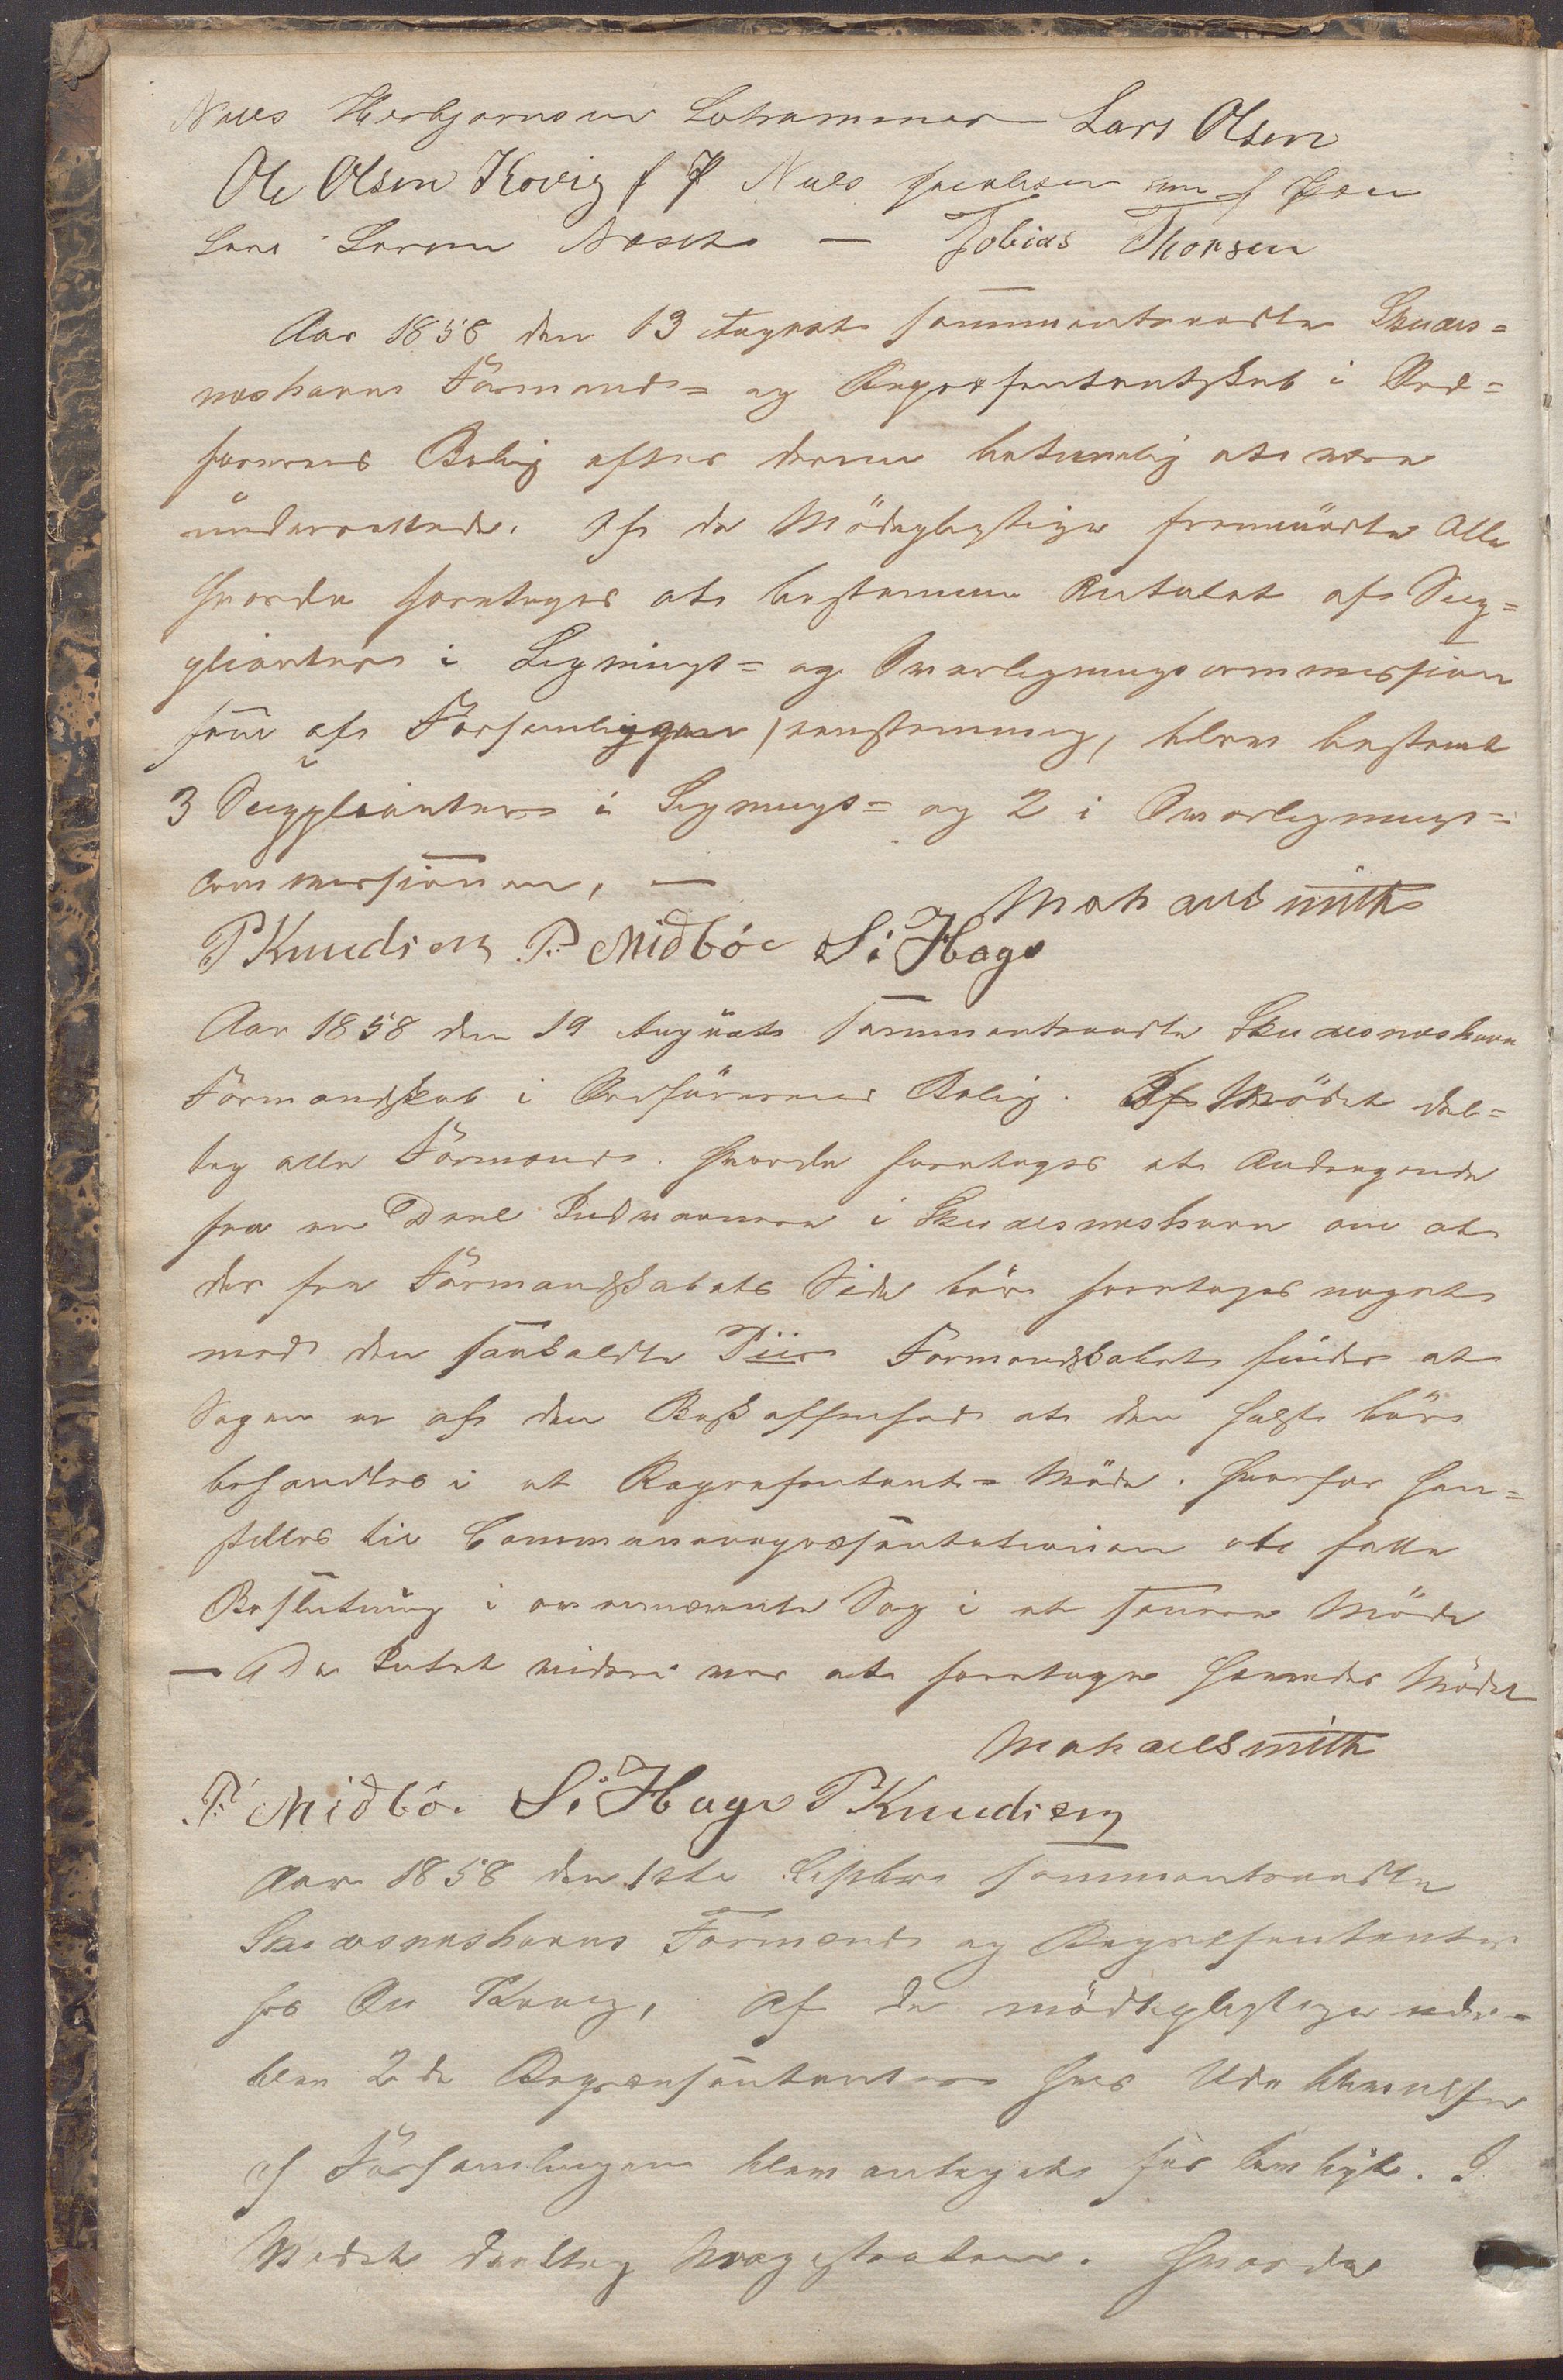 Niels Herbjørnsen Lahammer Lars Olsen
Ole Olsen Kovig f P Niels Jacobsen m f Pen
Lars Larsen Næsets — Tobias Thorsen
Aar 1858 den 13 August sammentraadte Skudes=
næshavns Formand= og Repræsentantskab i Ord=
førerens Bolig efter derom betimelig at være
underrettede. Af de Mødepligtige fremmødte Alle
Hvorda foretoges at bestemme Antalet af Sup=
plianter i Lignings= og Overligningscommission
som af Forsamlingen, eenstemmig, blev bestemt
3 Supplianter i Lignings= og 2 i Overlignings=
commissionen, —
Mohaus mith
P Knudsen P. Midböe S. Hage
Aar 1858 den 19 August Sammentraadte Skudesneshavn
Formandskab i Ordførerens Bolig. Af Mødet del=
tog alle Formænd. Hvorda foretoges et Andragende
fra en Deel Indvaanere i Skudesneshavn om at
der fra Formandskabets Side bør foretages noget
med den saakaldte Piir Formandskabet finder at
Sagen er af den Beskaffenhed at den helst bør
behandles i et Repræsentant= Møde. Hvorfor hen=
stilles til Communerepræsentationen at fatte
Beslutning i ovennævnte Sag i et senere Møde
— Da Intet videre var at foretage hævedes Mødet
Mohaus mith
P. Midbö. S. Hage P Knudsen
Aar 1858 den 1ste Septbr sammentraadte
Skudesneshavns Formænd og Repræsentanter
hos O Kovig, Af de mødepligtige ude=
blev 2 de Repræsentanter hvis Udeblivelse
af Forsamlingen blev antaget for lovligt. I
Mødet deeltog Magistraten. Hvorda